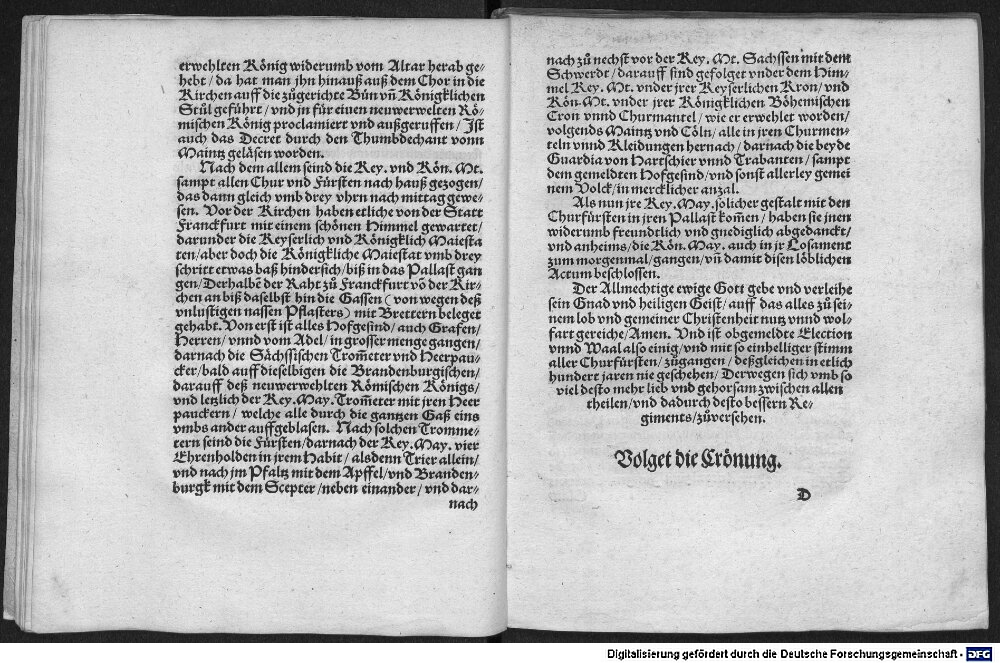 erwehlten König widerumb vom Altar herab ge-
hebt / da hat man jhn hinauß auß dem Chor in die
Kirchen auff die zůgerichte Bün vñ Königklichen
Stůl geführt / vnd in für einen neuwerwelten Rö-
mischen König proclamiert vnd außgeruffen / Ist
auch das Decret durch den Thumbdechant vonn
Maintz geläsen worden.
Nach dem allem seind die Key. vnd Kön. Mt.
sampt allen Chur vnd Fürsten nach hauß gezogen /
das dann gleich vmb drey vhrn nach mittag gewe-
sen. Vor der Kirchen haben etliche von der Statt
Franckfurt mit einem schönen Himmel gewartet /
darunder die Keyserlich vnd Königklich Maiesta
ten / aber doch die Königkliche Maiestat vmb drey
schritt etwas baß hindersich / biß in das Pallast gan
gen / Derhalbē der Raht zů Franckfurt vō der Kir-
chen an biß daselbst hin die Gassen (von wegen deß
vnlustigen nassen Pflasters) mit Brettern beleget
gehabt. Von erst ist alles Hofgesind / auch Grafen /
Herren / vnnd vom Adel / in grosser menge gangen /
darnach die Sächssischen Trom̃eter vnd Heerpau-
cker / bald auff dieselbigen die Brandenburgischen /
darauff deß neuwerwehlten Römischen Königs /
vnd letzlich der Key. May. Trom̃eter mit jren Heer
pauckern / welche alle durch die gantzen Gaß eins
vmbs ander auffgeblasen. Nach solchen Tromme-
tern seind die Fürsten / darnach der Key. May. vier
Ehrenholden in jrem Habit / alsdenn Trier allein /
vnd nach jm Pfaltz mit dem Apffel / vnd Branden-
burgk mit dem Scepter / neben einander / vnd dar-
nach
nach zů nechst vor der Key. Mt. Sachssen mit dem
Schwerdt / darauff sind gefolget vnder dem Him-
mel Key. Mt. vnder jrer Keyserlichen Kron / vnd
Kön. Mt. vnder jrer Königklichen Böhemischen
Cron vnnd Churmantel / wie er erwehlet worden /
volgends Maintz vnd Cöln / alle in jren Churmen-
teln vnnd Kleidungen hernach / darnach die beyde
Guardia von Hartschier vnnd Trabanten / sampt
dem gemeldten Hofgesind / vnd sonst allerley gemei
nem Volck / in mercklicher anzal.
Als nun jre Key. May. solicher gestalt mit den
Churfürsten in jren Pallast kom̃en / haben sie jnen
widerumb freundtlich vnd gnediglich abgedanckt /
vnd anheims / die Kön. May. auch in jr Losament
zum morgenmal / gangen / vñ damit disen löblichen
Actum beschlossen.
Der Allmechtige ewige Gott gebe vnd verleihe
sein Gnad vnd heiligen Geist / auff das alles zů sei-
nem lob vnd gemeiner Christenheit nutz vnnd wol-
fart gereiche / Amen. Vnd ist obgemeldte Election
vnnd Waal also einig / vnd mit so einhelliger stimm
aller Churfürsten / zůgangen / deßgleichen in etlich
hundert jaren nie geschehen / Derwegen sich vmb so
viel desto mehr lieb vnd gehorsam zwischen allen
theilen / vnd dadurch desto bessern Re-
giments / zůversehen.
Volget die Crönung.
D
Digitalisierung gefördert durch die Deutsche Forschungsgemeinschaft - DFG